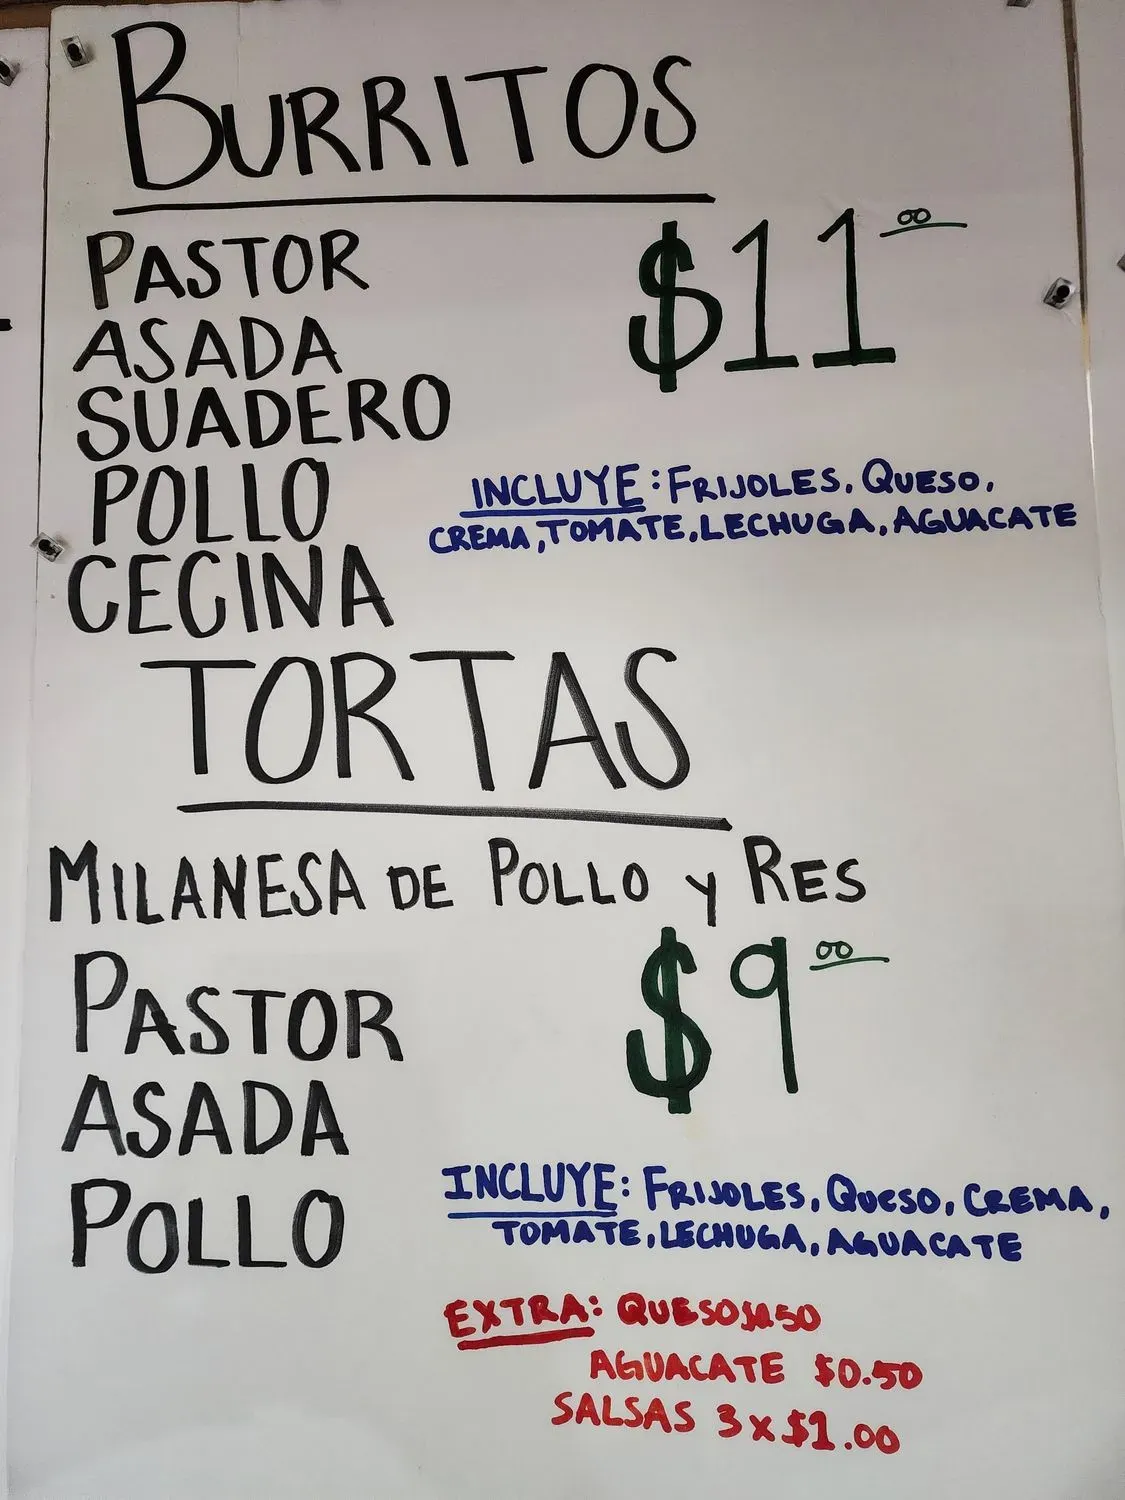 BURRITOS
PASTOR
$11.00
ASADA
SUADERO
POLLO
INCLUYE: FRIJOLES, QUESO,
CREMA, TOMATE, LECHUGA, AGUACATE
CECINA
TORTAS
MILANESA DE POLLO y RES
PASTOR
$9.00
ASADA
POLLO
INCLUYE: FRIJOLES, QUESO, CREMA,
TOMATE, LECHUGA, AGUACATE
EXTRA: QUESO
AGUACATE $0.50
SALSAS 3 x $1.00